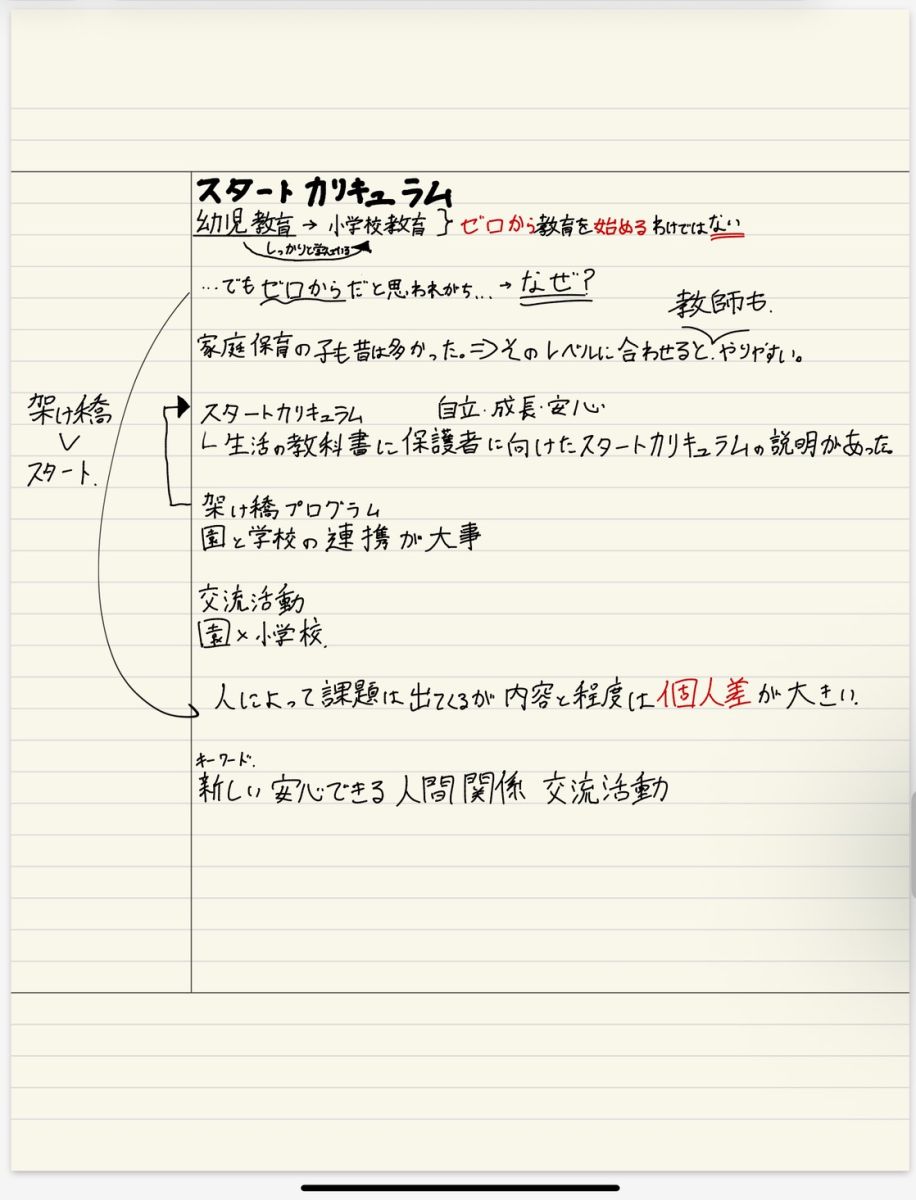 スタートカリキュラム
幼児教育→小学校教育}ゼロから教育を始めるわけではない
しっかりと学んでいる
…でもゼロからだと思われがち…→なぜ?
教師も.
家庭保育の子も昔は多かった。⇒そのレベルに合わせると、やりやすい。
架け橋
∨
スタート.
スタートカリキュラム 自立・成長・安心
└生活の教科書に保護者に向けたスタートカリキュラムの説明があった。
架け橋プログラム
園と学校の連携が大事
交流活動
園×小学校.
人によって課題は出てくるが内容と程度は個人差が大きい.
キーワード.
新しい安心できる人間関係 交流活動